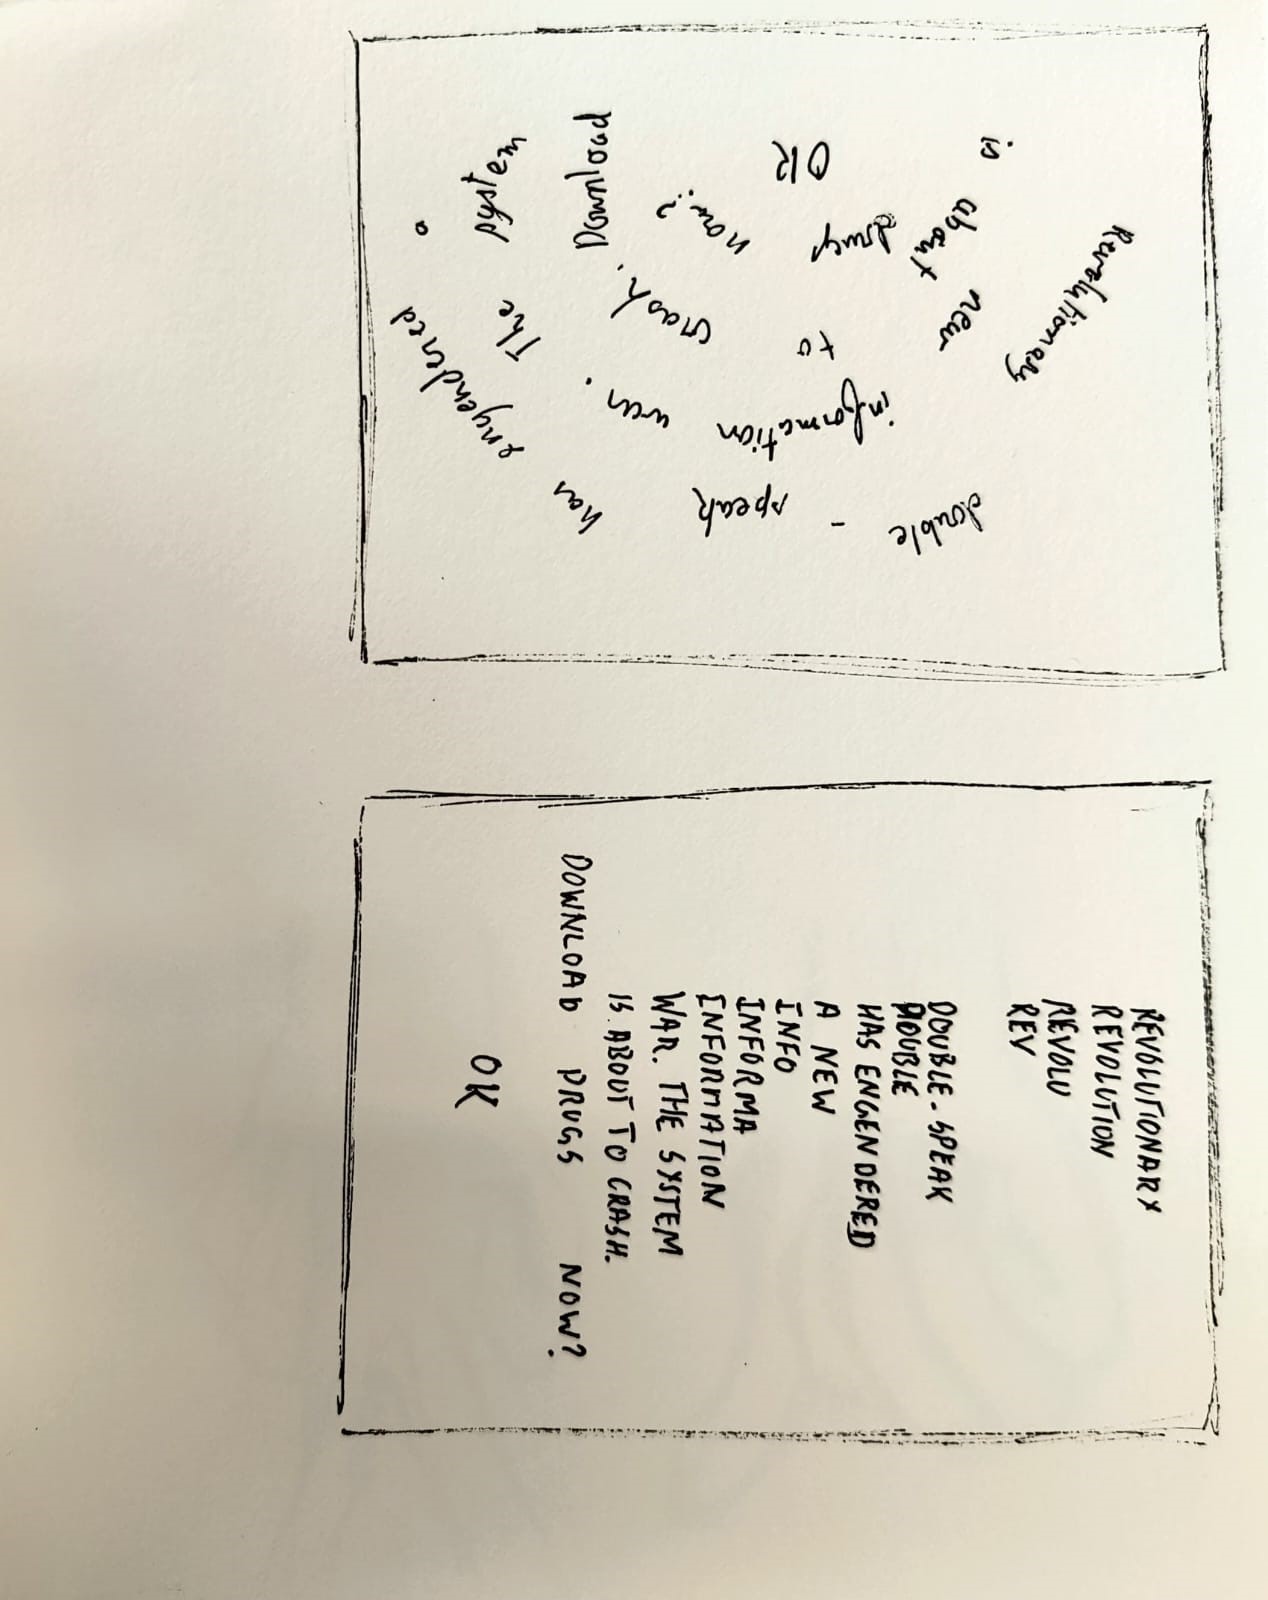 Revolutionary
double - speak
has
engendered
a
new
information war.
The
system
is
about
to
crash.
Download
drugs
now?
OK
REVOLUTIONARY
REVOLUTION
REVOLU
REV
DOUBLE-SPEAK
DOUBLE
HAS ENGENDERED
A NEW
INFO
INFORMA
INFORMATION
WAR. THE SYSTEM
IS ABOUT TO CRASH.
DOWNLOAD DRUGS NOW?
OK